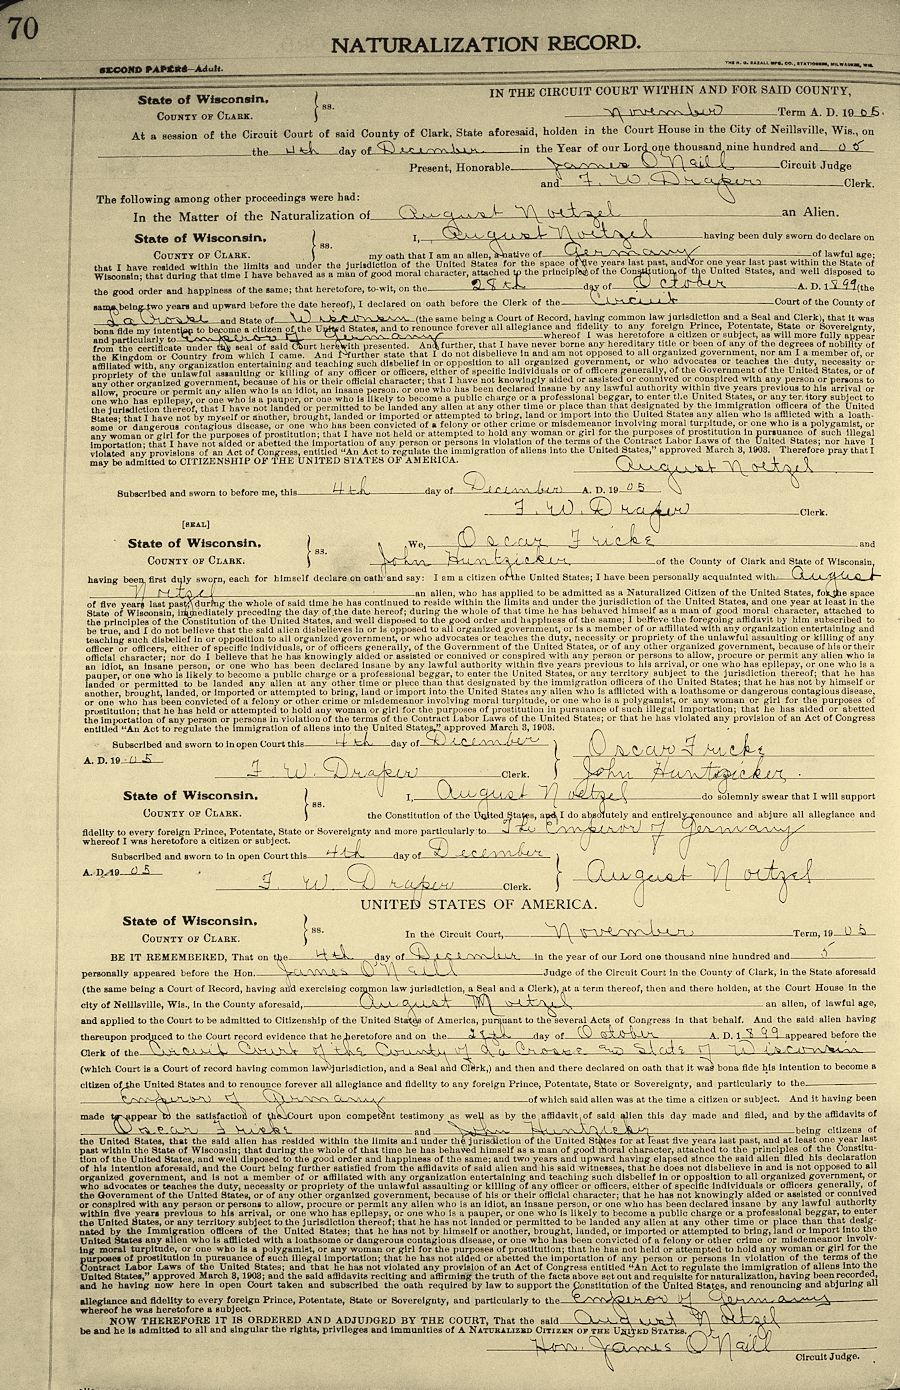 70
NATURALIZATION RECORD.
SECOND PAPERS—Adult.
THE H. G. RAZALL MFG. CO., STATIONERS, MILWAUKEE, WIS.
State of Wisconsin, COUNTY OF CLARK. } ss.
IN THE CIRCUIT COURT WITHIN AND FOR SAID COUNTY,
November Term A. D. 1905.
At a session of the Circuit Court of said County of Clark, State aforesaid, holden in the Court House in the City of Neillsville, Wis., on
the 4th day of December in the Year of our Lord one thousand nine hundred and 05
Present, Honorable James O'Neill Circuit Judge
and F. W. Draper Clerk.
The following among other proceedings were had:
In the Matter of the Naturalization of August Noetzel an Alien.
State of Wisconsin, COUNTY OF CLARK. } ss.
I, August Noetzel having been duly sworn do declare on
my oath that I am an alien, a native of Germany of lawful age;
that I have resided within the limits and under the jurisdiction of the United States for the space of five years last past, and for one year last past within the State of
Wisconsin; that during that time I have behaved as a man of good moral character, attached to the principles of the Constitution of the United States, and well disposed to
the good order and happiness of the same; that heretofore, to-wit, on the 28th day of October A. D. 1899 (the
same being two years and upward before the date hereof), I declared on oath before the Clerk of the Circuit Court of the County of
La Crosse and State of Wisconsin (the same being a Court of Record, having common law jurisdiction and a Seal and Clerk), that it was
bona fide my intention to become a citizen of the United States, and to renounce forever all allegiance and fidelity to any foreign Prince, Potentate, State or Sovereignty,
and particularly to Emperor of Germany whereof I was heretofore a citizen or subject, as will more fully appear
from the certificate under the seal of said Court herewith presented. And further, that I have never borne any hereditary title or been of any of the degrees of nobility of
the Kingdom or Country from which I came. And I further state that I do not disbelieve in and am not opposed to all organized government, nor am I a member of, or
affiliated with, any organization entertaining and teaching such disbelief in or opposition to all organized government, or who advocates or teaches the duty, necessity or
propriety of the unlawful assaulting or killing of any officer or officers, either of specific individuals or of officers generally, of the Government of the United States, or of
any other organized government, because of his or their official character; that I have not knowingly aided or assisted or connived or conspired with any person or persons to
allow, procure or permit any alien who is an idiot, an insane person, or one who has been declared insane by any lawful authority within five years previous to his arrival or
one who has epilepsy, or one who is a pauper, or one who is likely to become a public charge or a professional beggar, to enter the United States, or any territory subject to
the jurisdiction thereof, that I have not landed or permitted to be landed any alien at any other time or place than that designated by the immigration officers of the United
States; that I have not by myself or another, brought, landed or imported or attempted to bring, land or import into the United States any alien who is afflicted with a loath-
some or dangerous contagious disease, or one who has been convicted of a felony or other crime or misdemeanor involving moral turpitude, or who is a polygamist, or
any woman or girl for the purposes of prostitution; that I have not held or attempted to hold any woman or girl for the purposes of prostitution in pursuance of such illegal
importation; that I have not aided or abetted the importation of any person or persons in violation of the terms of the Contract Labor Laws of the United States; nor have I
violated any provisions of an Act of Congress, entitled "An Act to regulate the immigration of aliens into the United States," approved March 3, 1903. Therefore pray that I
may be admitted to CITIZENSHIP OF THE UNITED STATES OF AMERICA.
August Noetzel
Subscribed and sworn to before me, this 4th day of December A. D. 1905
F. W. Draper Clerk.
[SEAL]
State of Wisconsin, COUNTY OF CLARK. } ss.
We, Oscar Fricke and
John Huntzicker of the County of Clark and State of Wisconsin,
having been first duly sworn, each for himself declare on oath and say: I am a citizen of the United States; I have been personally acquainted with August
Noetzel an alien, who has applied to be admitted as a Naturalized Citizen of the United States, for the space
of five years last past; during the whole of said time he has continued to reside within the limits and under the jurisdiction of the United States, and one year at least in the
State of Wisconsin, immediately preceding the day of the date hereof; during the whole of that time he has behaved himself as a man of good moral character, attached to
the principles of the Constitution of the United States, and well disposed to the good order and happiness of the same; I believe the foregoing affidavit by him subscribed to
be true, and I do not believe that the said alien disbelieves in or is opposed to all organized government, or is a member of or affiliated with any organization entertaining and
teaching such disbelief in or opposition to all organized government, or who advocates or teaches the duty, necessity or propriety of the unlawful assaulting or killing of any
officer or officers, either of specific individuals, or of officers generally, of the Government of the United States, or of any other organized government, because of his or their
official character; nor do I believe that he has knowingly aided or assisted or connived or conspired with any person or persons to allow, procure or permit any alien who is
an idiot, an insane person, or one who has been declared insane by any lawful authority within five years previous to his arrival, or one who has epilepsy, or one who is a
pauper, or one who is likely to become a public charge or a professional beggar, to enter the United States, or any territory subject to the jurisdiction thereof; that he has
landed or permitted to be landed any alien at any other time or place than that designated by the immigration officers of the United States; that he has not by himself or
another, brought, landed, or imported or attempted to bring, land or import into the United States any alien who is afflicted with a loathsome or dangerous contagious disease,
or one who has been convicted of a felony or other crime or misdemeanor involving moral turpitude, or one who is a polygamist, or any woman or girl for the purposes of
prostitution; that he has held or attempted to hold any woman or girl for the purposes of prostitution in pursuance of such illegal importation; that he has aided or abetted
the importation of any person or persons in violation of the terms of the Contract Labor Laws of the United States; or that he has violated any provision of an Act of Congress
entitled "An Act to regulate the immigration of aliens into the United States," approved March 3, 1903.
Subscribed and sworn to in open Court this 4th day of December
A. D. 1905
F. W. Draper Clerk.
Oscar Fricke
John Huntzicker.
State of Wisconsin, COUNTY OF CLARK. } ss.
I, August Noetzel do solemnly swear that I will support
the Constitution of the United States, and I do absolutely and entirely renounce and abjure all allegiance and
fidelity to every foreign Prince, Potentate, State or Sovereignty and more particularly to The Emperor of Germany
whereof I was heretofore a citizen or subject.
Subscribed and sworn to in open Court this 4th day of December
A. D. 1905
F. W. Draper Clerk.
August Noetzel
UNITED STATES OF AMERICA.
State of Wisconsin, COUNTY OF CLARK. } ss.
In the Circuit Court, November Term, 1905
BE IT REMEMBERED, That on the 4th day of December in the year of our Lord one thousand nine hundred and 5
personally appeared before the Hon. James O'Neill Judge of the Circuit Court in the County of Clark, in the State aforesaid
(the same being a Court of Record, having and exercising common law jurisdiction, a Seal and a Clerk), at a term thereof, then and there holden, at the Court House in the
city of Neillsville, Wis., in the County aforesaid, August Noetzel an alien, of lawful age,
and applied to the Court to be admitted to Citizenship of the United States of America, pursuant to the several Acts of Congress in that behalf. And the said alien having
thereupon produced to the Court record evidence that he heretofore and on the 28th day of October A. D. 1899 appeared before the
Clerk of the Circuit Court of the County of La Crosse & State of Wisconsin
(which Court is a Court of record having common law jurisdiction, and a Seal and Clerk,) and then and there declared on oath that it was bona fide his intention to become a
citizen of the United States and to renounce forever all allegiance and fidelity to any foreign Prince, Potentate, State or Sovereignty, and particularly to the
Emperor of Germany of which said alien was at the time a citizen or subject. And it having been
made to appear to the satisfaction of the Court upon competent testimony as well as by the affidavit of said alien this day made and filed, and by the affidavits of
Oscar Fricke and John Huntzicker being citizens of
the United States, that the said alien has resided within the limits and under the jurisdiction of the United States for at least five years last past, and at least one year last
past within the State of Wisconsin; that during the whole of that time he has behaved himself as a man of good moral character, attached to the principles of the Constitu-
tion of the United States, and well disposed to the good order and happiness of the same; and two years and upward having elapsed since the said alien filed his declaration
of his intention aforesaid, and the Court being further satisfied from the affidavits of said alien and his said witnesses, that he does not disbelieve in and is not opposed to all
organized government, and is not a member of or affiliated with any organization entertaining and teaching such disbelief in or opposition to all organized government, or
who advocates or teaches the duty, necessity or propriety of the unlawful assaulting or killing of any officer or officers, either of specific individuals or officers generally, of
the Government of the United States, or of any other organized government, because of his or their official character; that he has not knowingly aided or assisted or connived
or conspired with any person or persons to allow, procure or permit any alien who is an idiot, an insane person, or one who has been declared insane by any lawful authority
within five years previous to his arrival, or one who has epilepsy, or one who is a pauper, or one who is likely to become a public charge or a professional beggar, to enter
the United States, or any territory subject to the jurisdiction thereof; that he has not landed or permitted to be landed any alien at any other time or place than that desig-
nated by the Immigration officers of the United States; that he has not by himself or another, brought, landed, or imported or attempted to bring, land or import into the
United States any alien who is afflicted with a loathsome or dangerous contagious disease, or one who has been convicted of a felony or other crime or misdemeanor involv-
ing moral turpitude, or one who is a polygamist, or any woman or girl for the purposes of prostitution; that he has not held or attempted to hold any woman or girl for the
purposes of prostitution in pursuance of such illegal importation; that he has not aided or abetted the importation of any person or persons in violation of the terms of the
Contract Labor Laws of the United States; and that he has not violated any provision of an Act of Congress entitled "An Act to regulate the immigration of aliens into the
United States," approved March 3, 1903; and the said affidavits reciting and affirming the truth of the facts above set out and requisite for naturalization, having been recorded,
and he having now here in open Court taken and subscribed the oath required by law to support the Constitution of the United States, and renouncing and abjuring all
allegiance and fidelity to every foreign Prince, Potentate, State or Sovereignty, and particularly to the Emperor of Germany
whereof he was heretofore a subject.
NOW THEREFORE IT IS ORDERED AND ADJUDGED BY THE COURT, That the said August Noetzel
be and he is admitted to all and singular the rights, privileges and immunities of A NATURALIZED CITIZEN OF THE UNITED STATES.
Hon. James O'Neill
Circuit Judge.